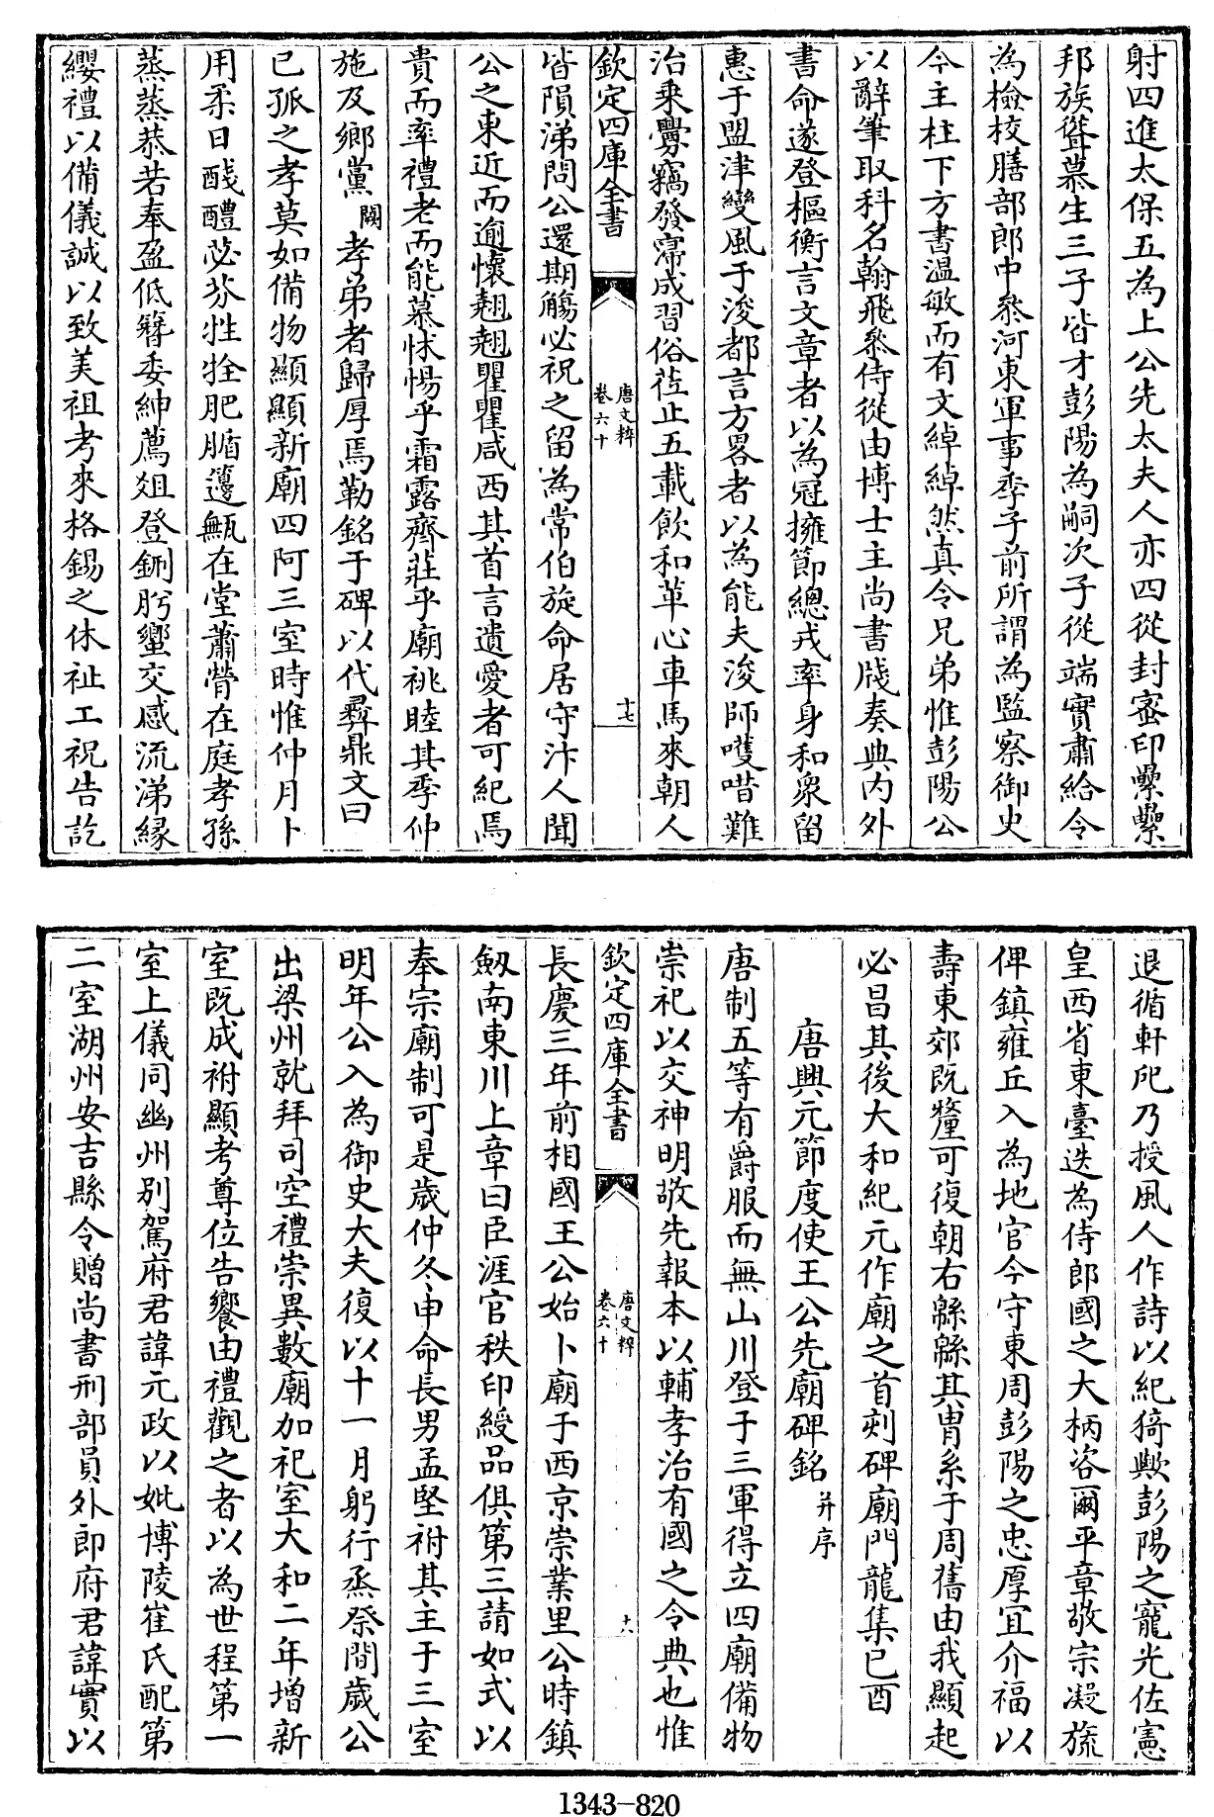 射四進太保五為上公先太夫人亦四從封密印纍纍
邦族聳慕生三子皆才彭陽為嗣次子從端實肅給令
為檢校膳部郎中叅河東軍事季子前所謂為監察御史
今主柱下方書溫敏而有文綽綽然真令兄弟惟彭陽公
以辭筆取科名翰飛叅侍從由博士主尚書牋奏典內外
書命遂登樞衡言文章者以為冠擁節總戎率身和衆留
惠于盟津變風于浚都言方畧者以為能夫浚師嘆唶難
治乗釁竊發常成習俗莅止五載飲和革心車馬來朝人
欽定四庫全書
唐文粹
卷六十
十七
皆隕涕問公還期觴必祝之留為常伯旋命居守汴人聞
公之東近而逾懷翹翹瞿瞿咸西其首言遺愛者可紀焉
貴而率禮老而能慕怵惕乎霜露齊莊乎廟祧睦其季仲
施及鄉黨闕孝弟者歸厚焉勒銘于碑以代彛鼎文曰
已孤之孝莫如備物顯顯新廟四阿三室時惟仲月卜
用柔日醆醴苾芬牲牷肥腯籩甒在堂蕭膋在庭孝孫
蒸蒸恭若奉盈低簪委紳薦俎登鉶肹蠁交感流涕緣
纓禮以備儀誠以致美祖考來格錫之休祉工祝告訖
退循軒戺乃授風人作詩以紀猗歟彭陽之寵光佐憲
皇西省東臺迭為侍郎國之大柄咨爾平章敬宗凝旒
俾鎮雍丘入為地官今守東周彭陽之忠厚宜介福以
壽東郊既釐可復朝右緜緜其胄系于周舊由我顯起
必昌其後大和紀元作廟之首刻碑廟門龍集已酉
唐興元節度使王公先廟碑銘并序
唐制五等有爵服而無山川登于三軍得立四廟備物
崇祀以交神明敬先報本以輔孝治有國之令典也惟
欽定四庫全書
唐文粹
卷六十
十八
長慶三年前相國王公始卜廟于西京崇業里公時鎮
劔南東川上章曰臣涯官秩印綬品俱第三請如式以
奉宗廟制可是歲仲冬申命長男孟堅祔其主于三室
明年公入為御史大夫復以十一月躬行烝祭間歲公
出梁州就拜司空禮崇異數廟加祀室大和二年增新
室既成祔顯考尊位告饗由禮觀之者以為世程第一
室上儀同幽州別駕府君諱元政以妣博陵崔氏配第
二室湖州安吉縣令贈尚書刑部員外郎府君諱實以
1343-820